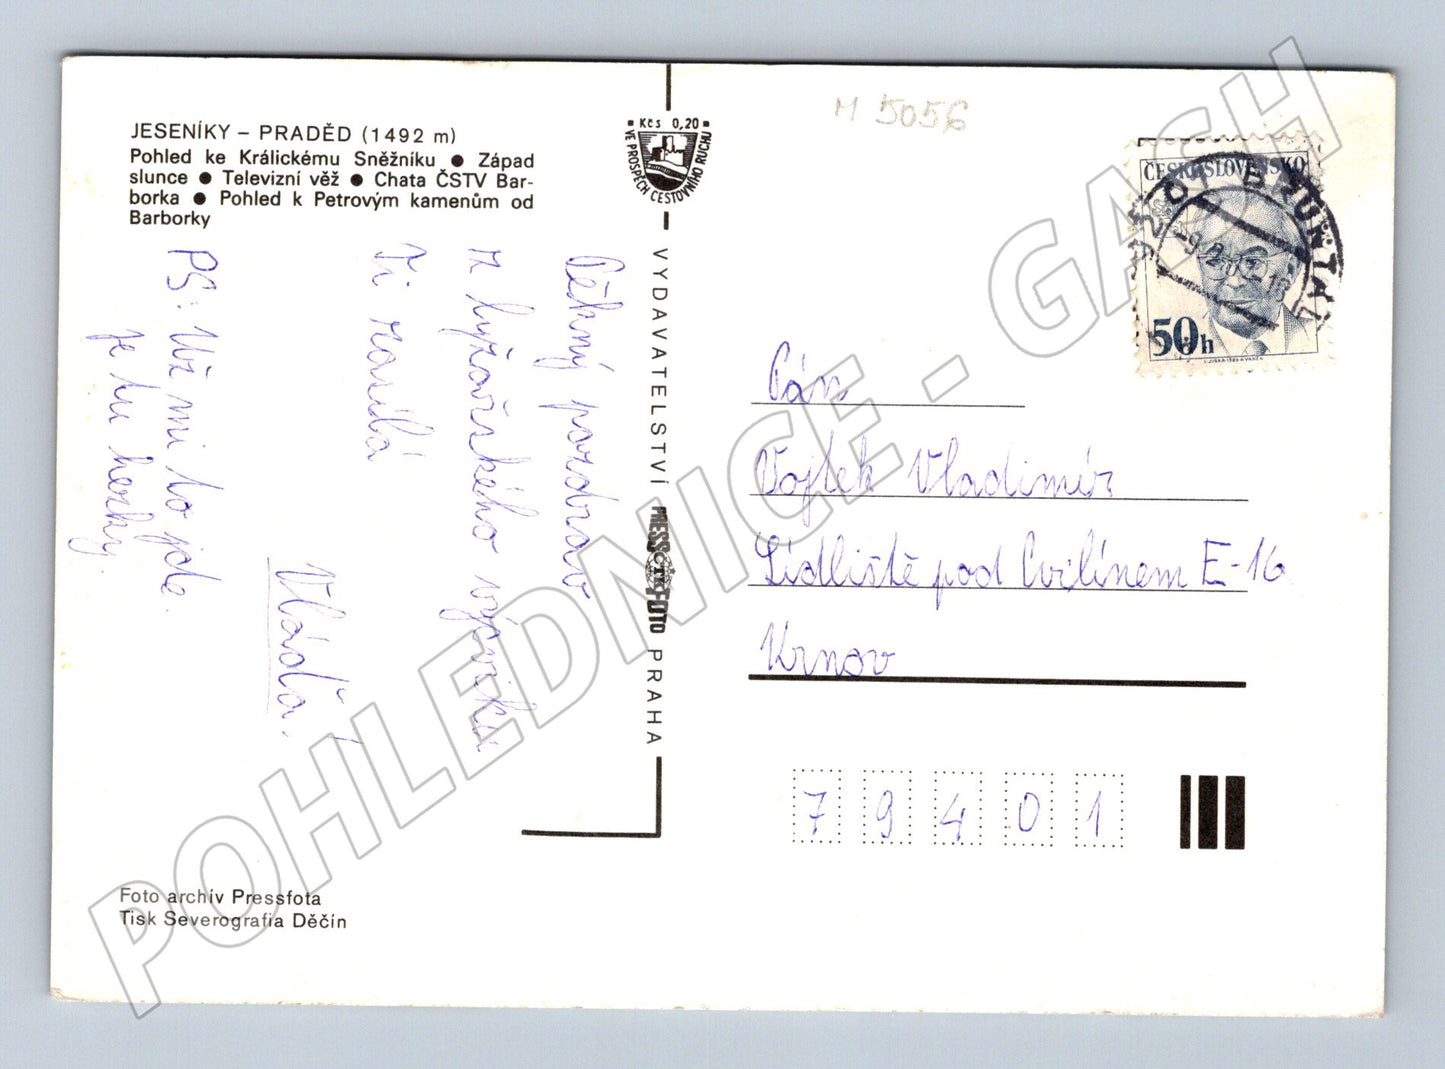 JESENÍKY – PRADĚD (1492 m)
Pohled ke Králickému Sněžníku ● Západ
slunce ● Televizní věž ● Chata ČSTV Bar-
borka ● Pohled k Petrovým kamenům od
Barborky
Pěkný pozdrav
z lyžařského výcviku
Ti zasílá
Vláďa.
PS: Už mi to jde.
je tu hezky.
Foto archív Pressfota
Tisk Severografia Děčín
Kčs 0,20
VE PROSPĚCH CESTOVNÍHO RUCHU
VYDAVATELSTVÍ PRESSFOTO PRAHA
ČTK
M 5056
ČESKOSLOVENSKO
50h
BRUNTÁL
Pán
Vojtek Vladimír
Sídliště pod Cvilínem E-16
Krnov
79401
POHLEDNICE - GASH